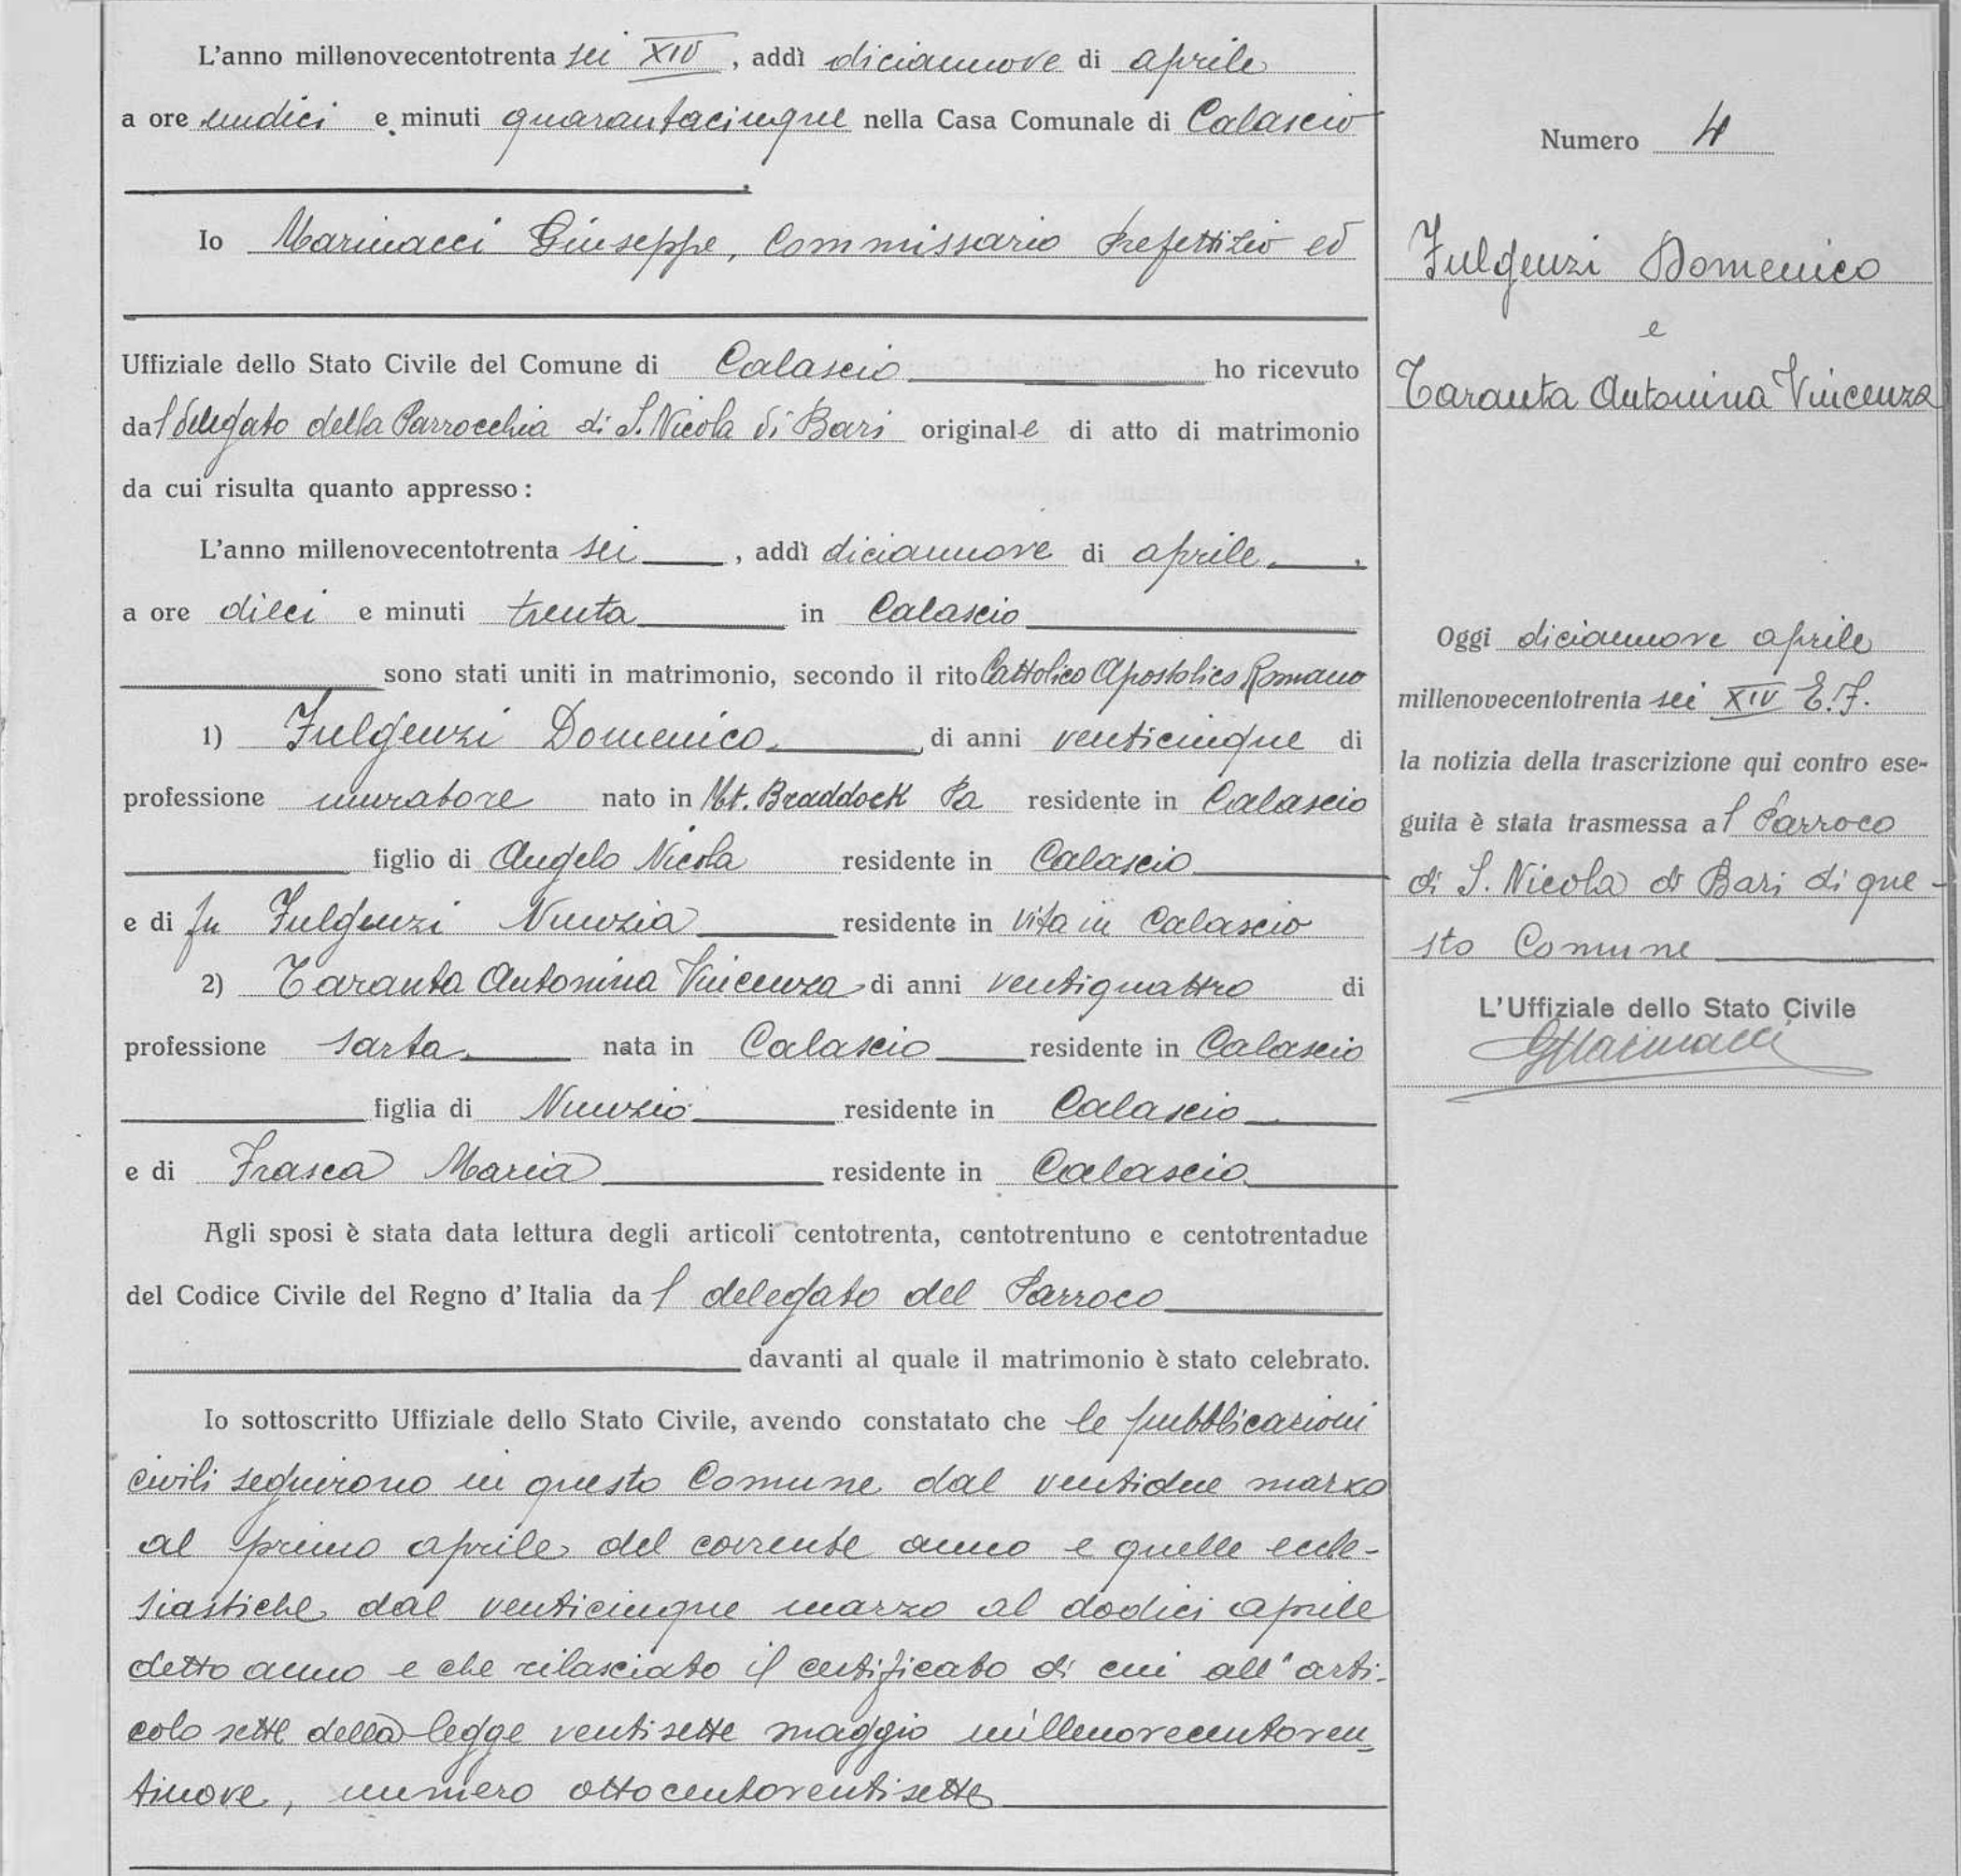 L'anno millenovecentotrenta sei XIV, addì diciannove di aprile
a ore undici e minuti quarantacinque nella Casa Comunale di Calascio
Io Marinacci Giuseppe, Commissario Prefettizio ed
Uffiziale dello Stato Civile del Comune di Calascio ho ricevuto
dal delegato della Parrocchia di S. Nicola di Bari originale di atto di matrimonio
da cui risulta quanto appresso:
L'anno millenovecentotrenta sei, addì diciannove di aprile,
a ore dieci e minuti trenta in Calascio
sono stati uniti in matrimonio, secondo il rito Cattolico Apostolico Romano
1) Fulgenzi Domenico, di anni venticinque di
professione muratore nato in Mt. Braddock Pa residente in Calascio
figlio di Angelo Nicola residente in Calascio
e di fu Fulgenzi Nunzia residente in vita in Calascio
2) Taranta Antonina Vincenza di anni ventiquattro di
professione sarta nata in Calascio residente in Calascio
figlia di Nunzio residente in Calascio
e di Frasca Maria residente in Calascio
Agli sposi è stata data lettura degli articoli centotrenta, centotrentuno e centotrentadue
del Codice Civile del Regno d'Italia dal delegato del Parroco
davanti al quale il matrimonio è stato celebrato.
Io sottoscritto Uffiziale dello Stato Civile, avendo constatato che le pubblicazioni
civili seguirono in questo Comune dal ventidue marzo
al primo aprile del corrente anno e quelle eccle-
siastiche dal venticinque marzo al dodici aprile
detto anno e che rilasciato il certificato di cui all'arti-
colo sette della legge ventisette maggio millenovecentoven
tinove, numero ottocentoventisette
Numero 4
Fulgenzi Domenico
e
Taranta Antonina Vincenza
Oggi diciannove aprile
millenovecentotrenta sei XIV E.F.
la notizia della trascrizione qui contro ese-
guita è stata trasmessa al Parroco
di S. Nicola di Bari di que-
sto Comune
L'Uffiziale dello Stato Civile
GMarinacci